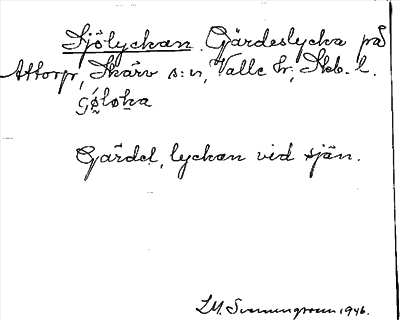 Sjölyckan. Gärdeslycka på
Attorp, Skärv s:n, Valle hr, Skb. l.
Gärdel, lyckan vid sjön.
1946.